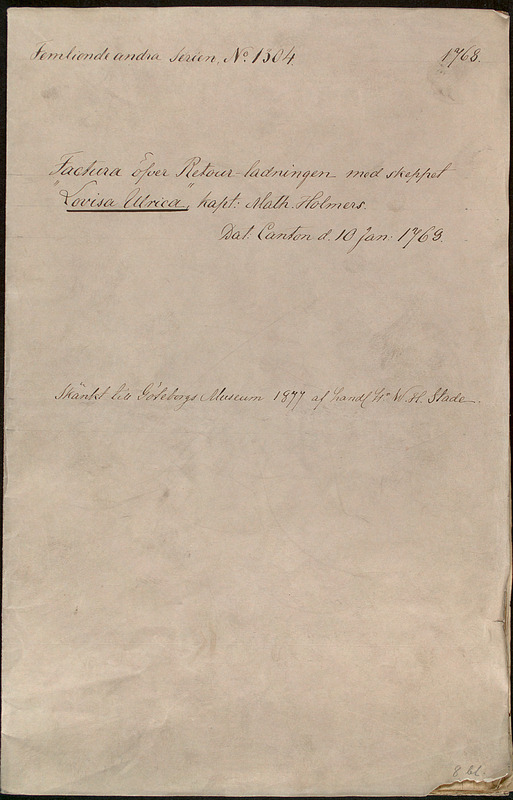 Femtionde andra Serien. No. 1304. 1768.
Factura öfver Retour-ladningen med skeppet
"Lovisa Ulrica", kapt: Math. Holmers.
Dat. Canton d. 10 Jan: 1768.
Skänkt till Göteborgs Museum 1877 af handl. Hr W. H. Stade.
8 bl.